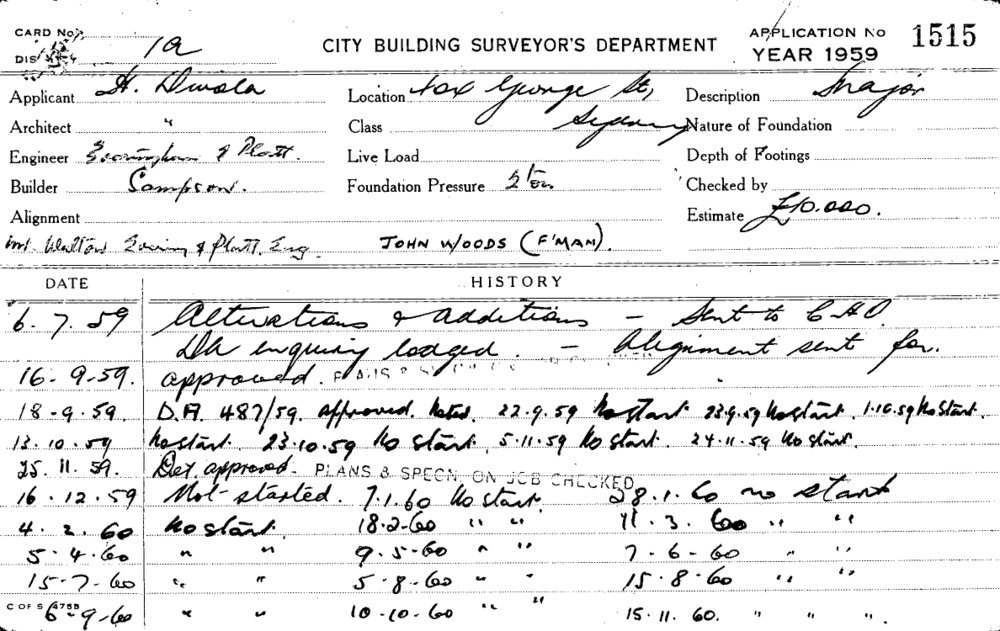 CARD No. 1a
DIS
CITY BUILDING SURVEYOR'S DEPARTMENT
APPLICATION No 1515
YEAR 1959
Applicant H. Divola Location 402 George St, Sydney Description Major
Architect " Class Nature of Foundation
Engineer & Platt. Live Load Depth of Footings
Builder Sampson. Foundation Pressure 2 ton Checked by
Alignment Estimate £10.000.
Mr. Walton & Platt. Eng. JOHN WOODS (F'MAN).
DATE HISTORY
6.7.59 Alterations & additions - Sent to
DA enquiry lodged. - Alignment sent for.
16-9-59. approved.
18-9-59 D.A. 487/59. Approved. Noted. 22.9.59 No start 23.9.59 No start. 1.10.59 No Start.
13.10.59 No start. 23.10.59 No start. 5.11.59 No start. 24.11.59 No start.
25.11.59. Det. approved. PLANS & SPECN. ON JOB CHECKED
16.12.59 Not started. 7.1.60 No start. 28.1.60 no start
4.2.60 No start. 18-2-60 " " 11.3.60 " "
5-4-60 " " 9-5-60 " " 7-6-60 " "
15-7-60 " " 5-8-60 " " 15.8.60 " "
C OF S 6-9-60 " " 10-10-60 " " 15.11.60. " " "